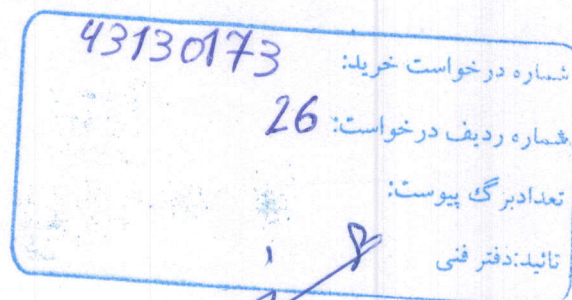 شماره درخواست خرید: 43130173
شماره ردیف درخواست: 26
تعدادبرگ پیوست:
تائید:دفتر فنی